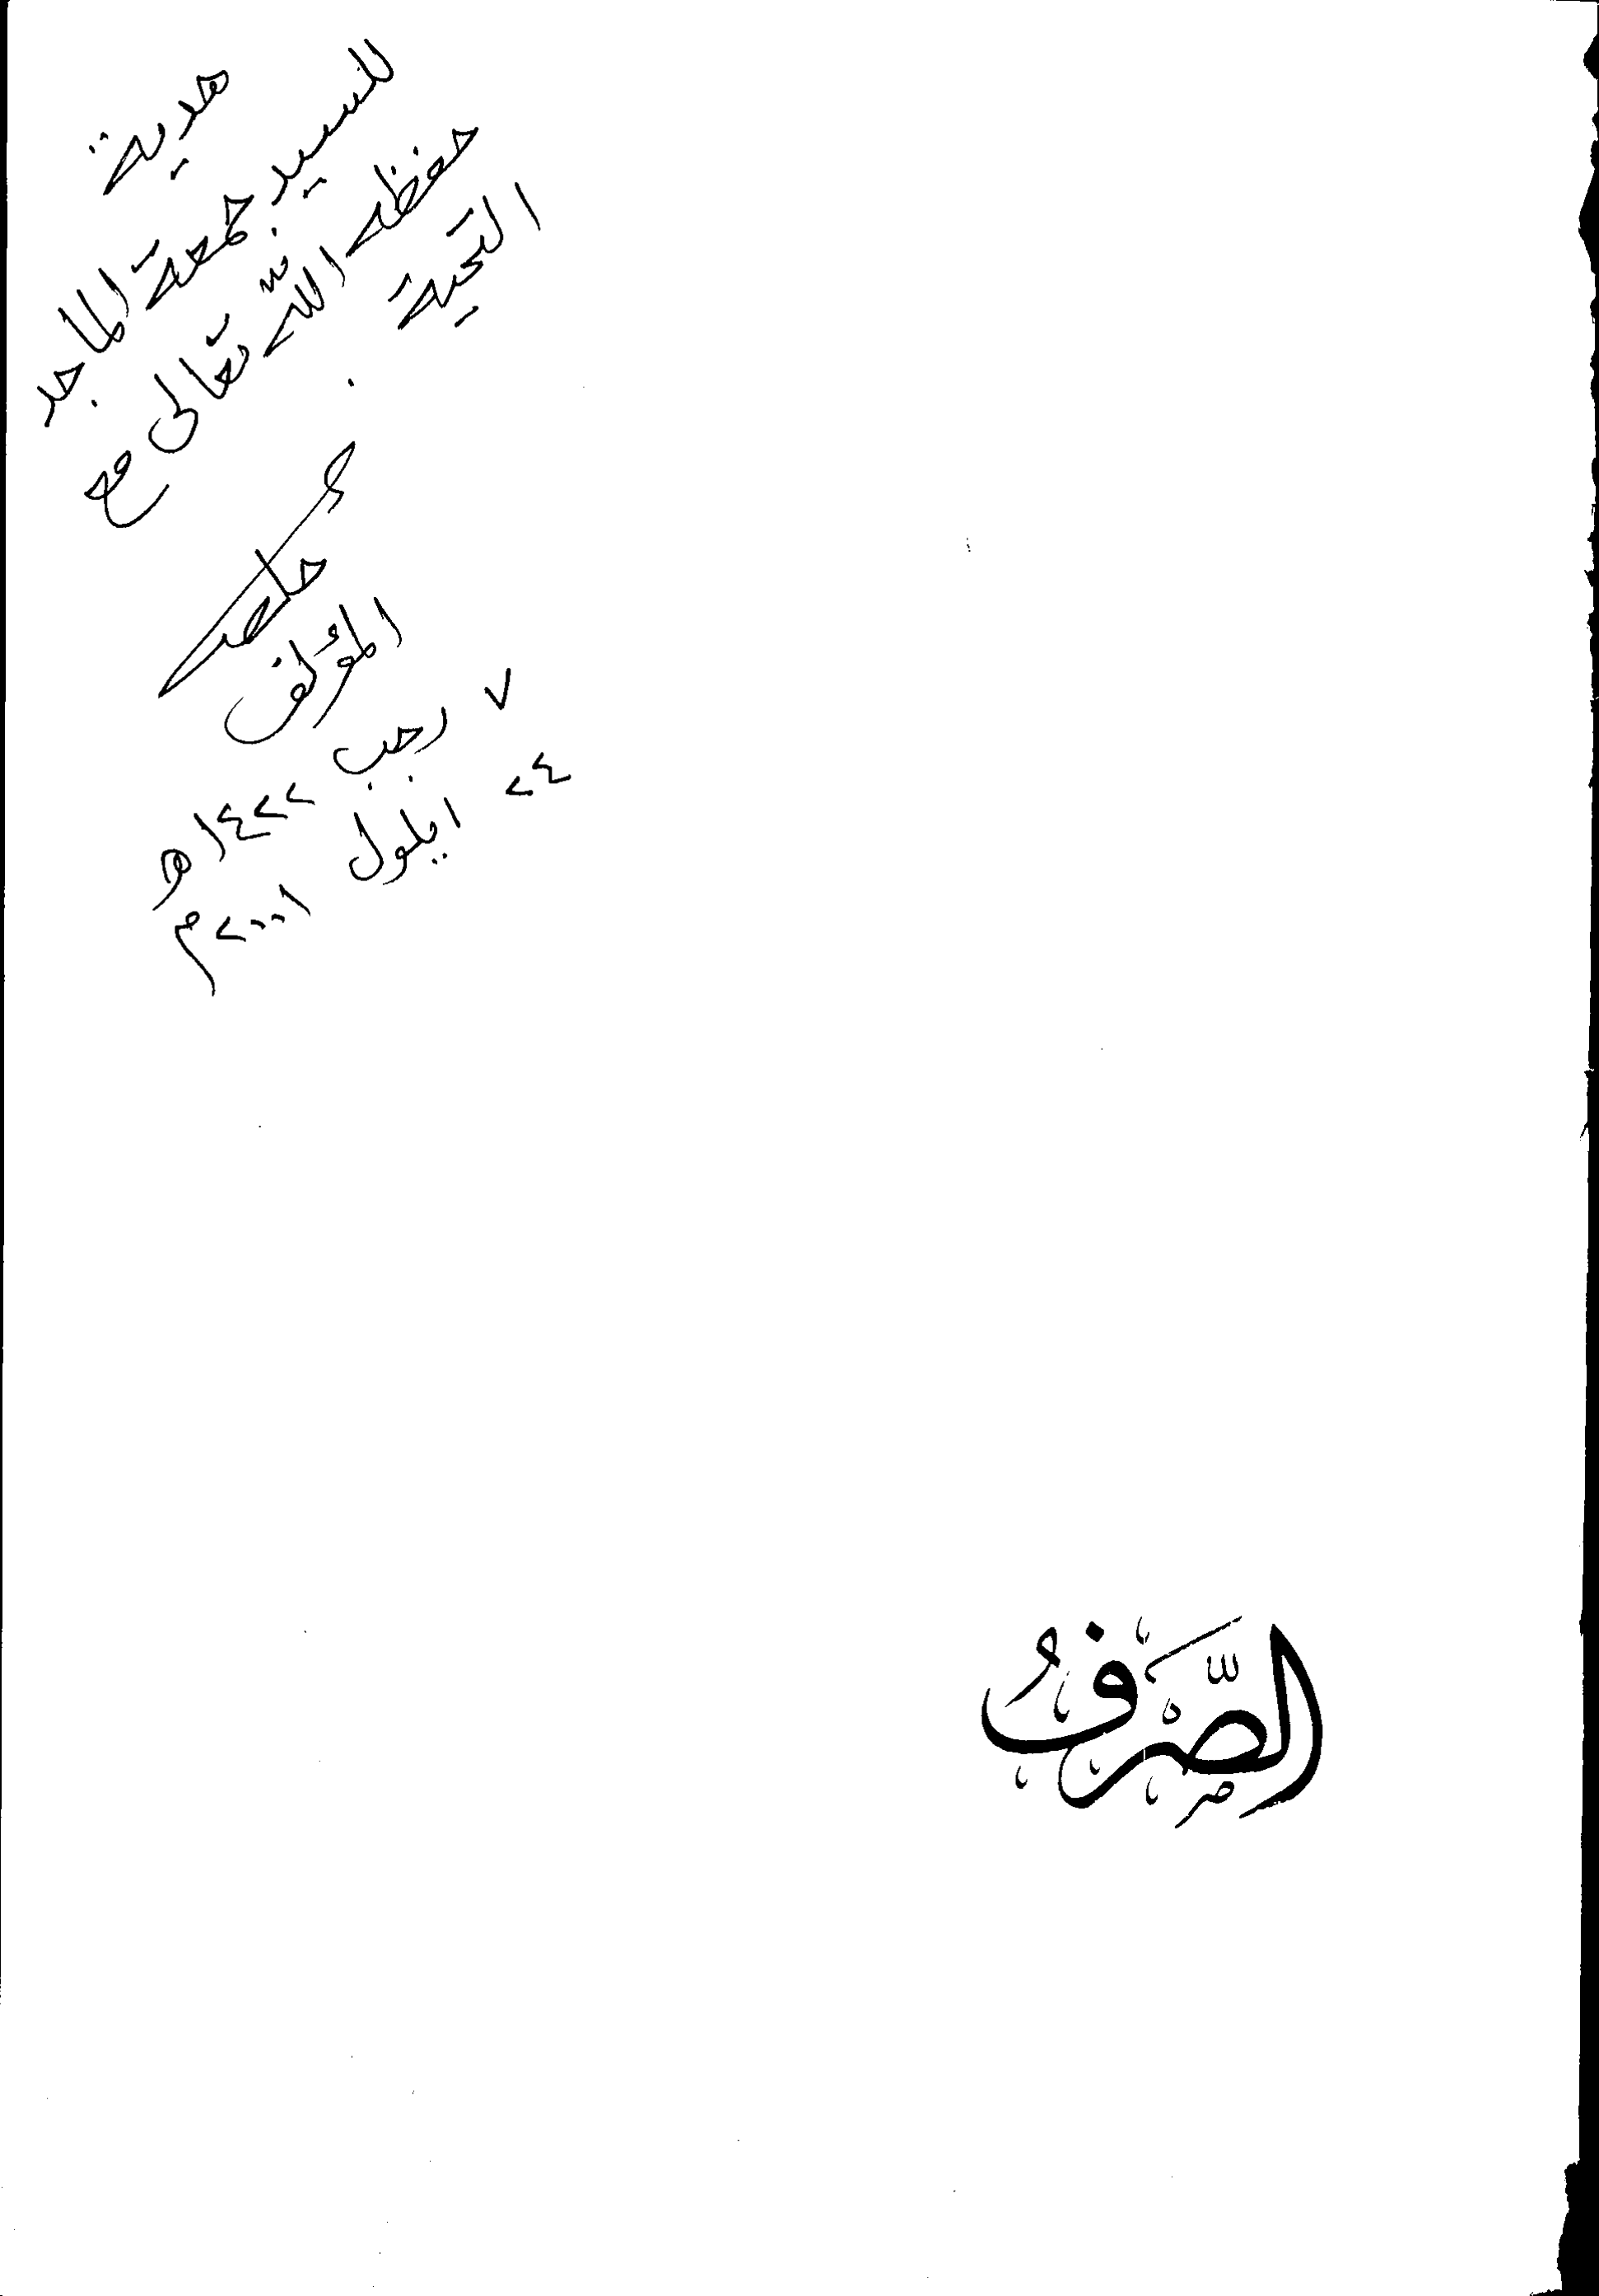 هدية
للسيد جمعة الماجد
حفظه الله تعالى مع
التحية
المؤلف
٧ رجب ١٤٢٢هـ
٢٤ ايلول ٢٠٠١م
الصَّرْفُ